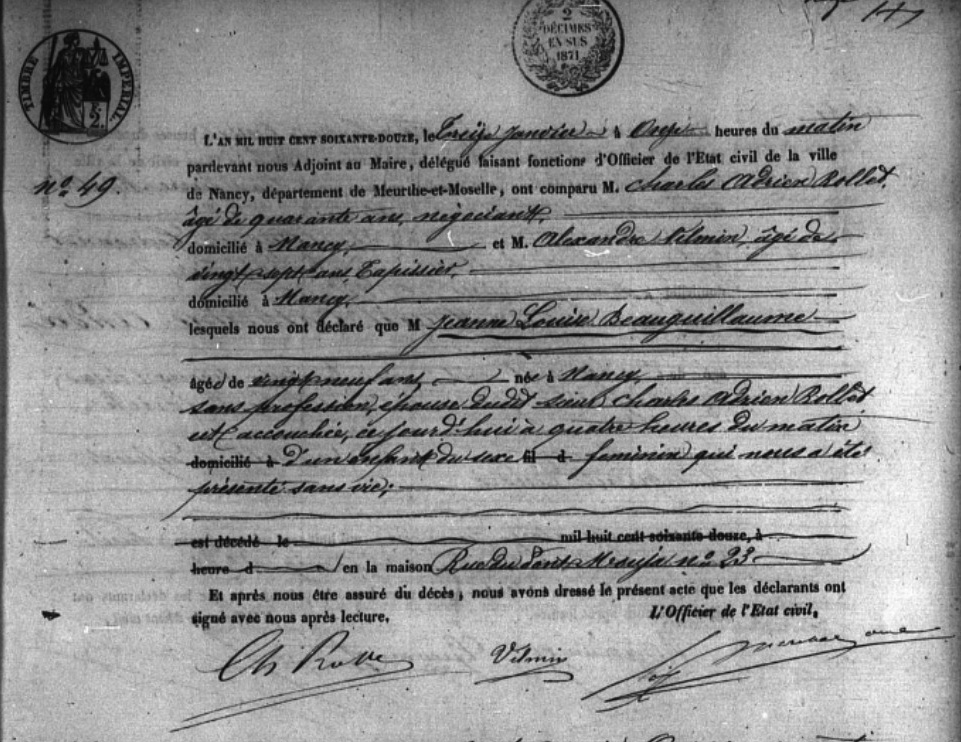 TIMBRE IMPERIAL
2
DÉCIMES
EN SUS
1871
L'AN MIL HUIT CENT SOIXANTE-DOUZE, le Treize Janvier à Onze heures du matin
pardevant nous Adjoint au Maire, délégué faisant fonctions d'Officier de l'Etat civil de la ville
nº 49.
de Nancy, département de Meurthe-et-Moselle, ont comparu M. Charles Adrien Rollet,
âgé de quarante ans, négociant,
domicilié à Nancy, et M. Alexandre Vilmin, âgé de
vingt sept ans, Tapissier,
domicilié à Nancy,
lesquels nous ont déclaré que M Jeanne Louise Beauguillaume
âgée de vingt neuf ans, née à Nancy,
sans profession, épouse dudit sieur Charles Adrien Rollet
est accouchée, ce jourd'hui à quatre heures du matin
domicilié à d'un enfant du sexe fil d féminin qui nous a été
présenté sans vie;
est décédé le mil huit cent soixante-douze, à
heure d en la maison Rue du Pont Mouja nº 23
Et après nous être assuré du décès, nous avons dressé le présent acte que les déclarants ont
signé avec nous après lecture. L'Officier de l'Etat civil,
Ch Vilmin